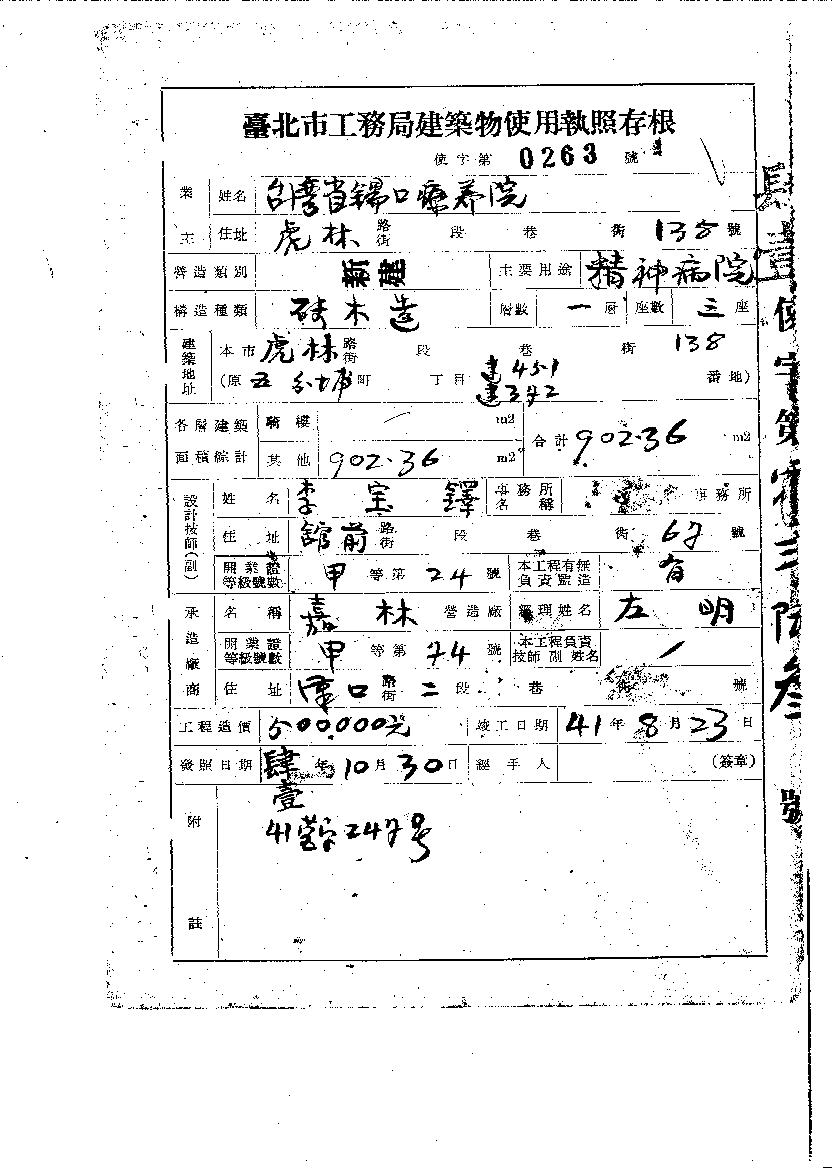 臺北市工務局建築物使用執照存根
使字第 0263 號
業主 姓名 台湾省錫口療养院
住址 虎林 路街 段 巷 街 138 號
營造類別 新建 主要用途 精神病院
構造種類 磚木造 層數 一 層 座數 三 座
建築地址 本市 虎林 路街 段 巷 街 138
(原 五分埔 町 丁目 建451 建372 番地)
各層建築面積綜計 騎樓 / m2 合計 902.36 m2
其他 902.36 m2
設計技師(副) 姓名 李宝鐸 事務所名稱 事務所
住址 館前 路街 段 巷 街 67 號
開業證等級號數 甲 等第 24 號 本工程有無負責監造 有
承造廠商 名稱 嘉林 營造廠 經理姓名 左明
開業證等級號數 甲 等第 74 號 本工程負責技師副姓名 /
住址 漢口 路街 二 段 巷 號
工程造價 500,000元 竣工日期 41年 8月 23日
發照日期 肆壹 年 10月 30日 經手人 (簽章)
附註 41營字247号
肆壹使字第零二陆叁號